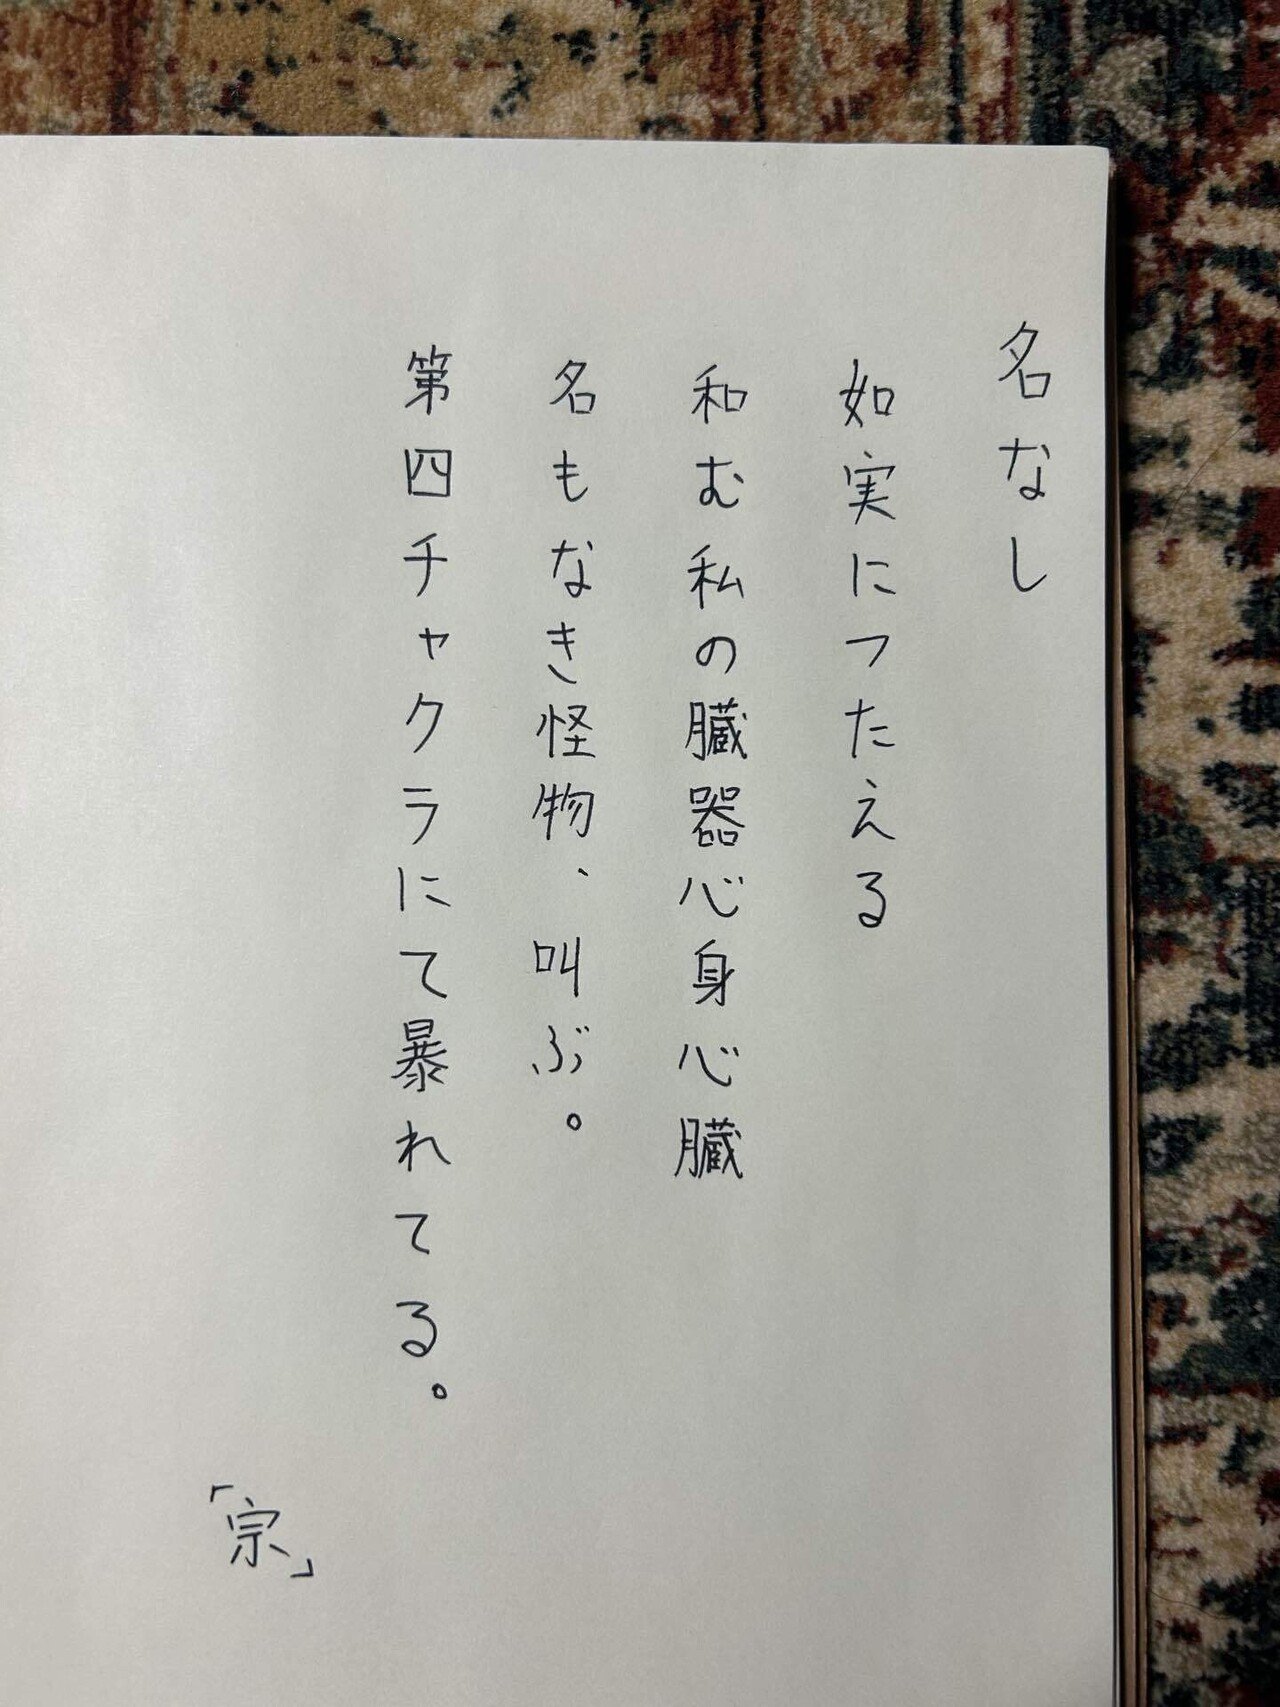 名なし
如実につたえる
和む私の臓器心身心臓
名もなき怪物、叫ぶ。
第四チャクラにて暴れてる。
「宗」